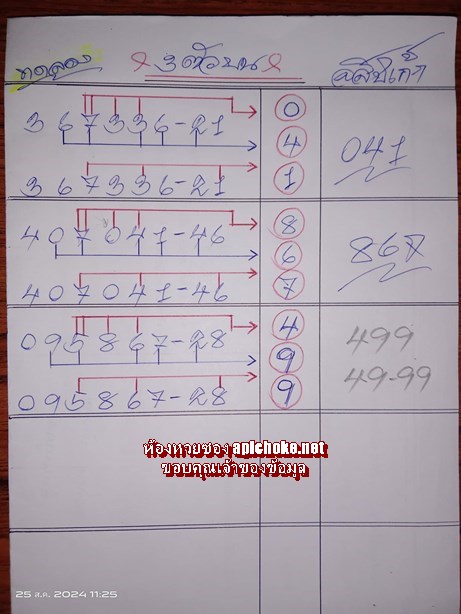 ทดลอง 3ตัวบน อีสปเก้า
367336-21 0
4 041
367336-21 1
407041-46 8
6 867
407041-46 7
095867-28 4 499
9 49-99
095867-28 9
ห้องหวยซอง apichoke.net
ขอบคุณเจ้าของข้อมูล
25 ส.ค. 2024 11:25